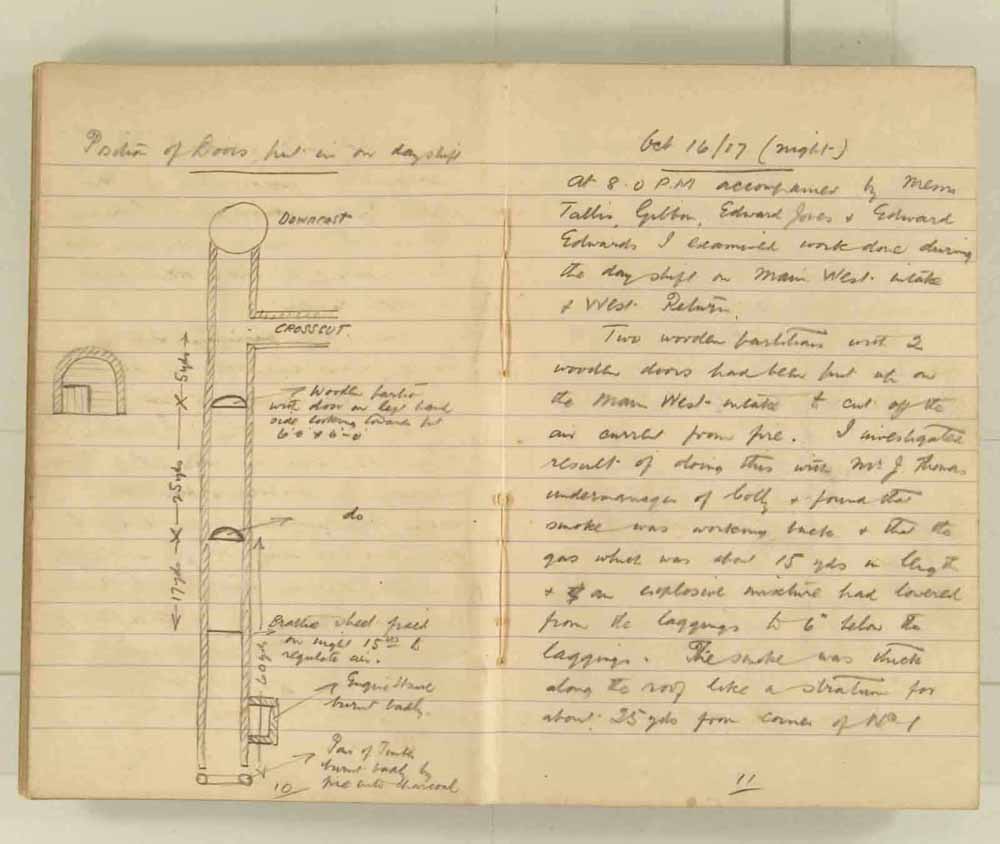 Position of Doors put in on day shift
DOWNCAST
CROSSCUT.
5 yds
Wooden
with door on left hand
side looking towards pit
6'0" x 6'-0"
25 yds
do
17 yds
Brattice sheet fixed
on night 15th to
regulate air.
60 yds
Engine House
burnt badly.
Pair of Timber
burnt badly by
fire into charcoal
10
Oct 16/17 (night)
At 8.0 P.M accompanied by Messrs
Tallis, Gibbon, Edward Jones & Edward
Edwards I examined work done during
the day shift on Main West intake
& West Return.
Two wooden partitions with 2
wooden doors had been put up on
the Main West intake to cut off the
air current from fire. I investigated
result of doing this with Mr J Thomas
undermanager of Colly & found that
smoke was working back & that the
gas which was about 15 yds in length
& an explosive mixture had lowered
from the laggings to 6" below the
laggings. The smoke was thick
along the roof like a stratum for
about 25 yds from corner of No 1
11